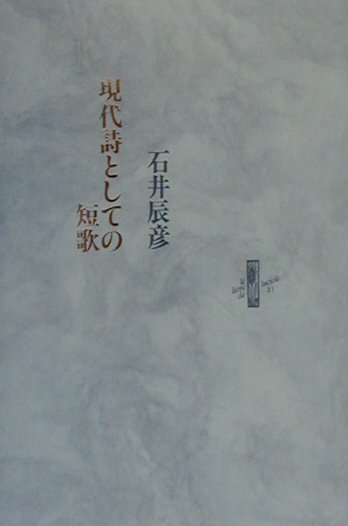 現代詩としての
短歌
石井辰彦